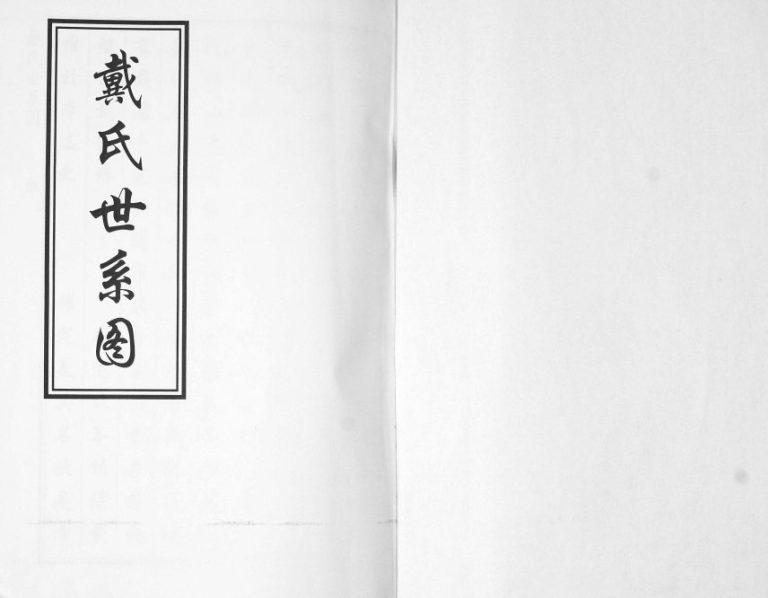 戴氏世系图